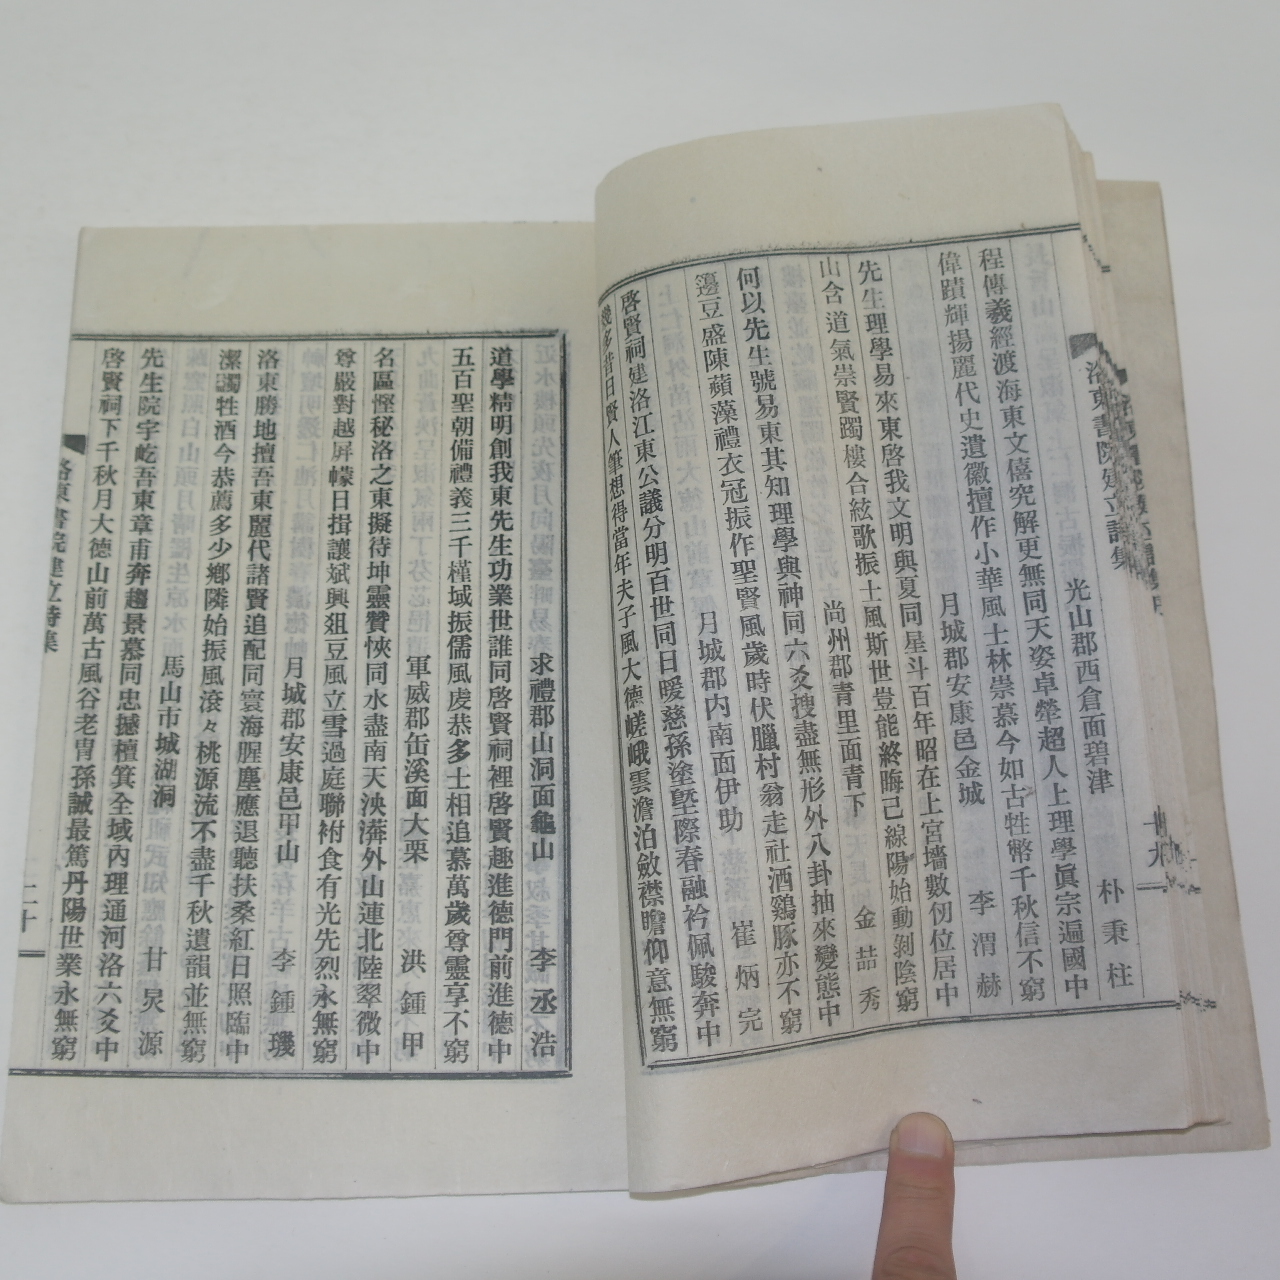 洛東書院建立詩集
十九
光山郡西倉面碧津 朴秉柱
程傳義經渡海東文僖究解更無同天姿卓犖超人上理學眞宗遍國中
偉蹟輝揚麗代史遺徽擅作小華風士林崇慕今如古牲幣千秋信不窮
月城郡安康邑金城 李渭赫
先生理學易來東啓我文明與夏同星斗百年昭在上宮墻數仞位居中
山含道氣崇賢躅樓合絃歌振士風斯世豈能終晦己線陽始動剝陰窮
尚州郡青里面青下 金喆秀
何以先生號易東其知理學與神同六爻搜盡無形外八卦抽來變態中
籩豆盛陳蘋藻禮衣冠振作聖賢風歲時伏臘村翁走社酒鷄豚亦不窮
月城郡內南面伊助 崔炳完
啓賢祠建洛江東公議分明百世同日暖慈孫塗墍際春融衿佩駿奔中
幾多昔日賢人筆想得當年夫子風大德嵯峨雲澹泊斂襟瞻仰意無窮
求禮郡山洞面龜山 李丞浩
道學精明創我東先生功業世誰同啓賢祠裡啓賢趣進德門前進德中
五百聖朝備禮義三千槿域振儒風虔恭多士相追慕萬歲尊靈享不窮
軍威郡缶溪面大栗 洪鍾甲
名區慳秘洛之東擬待坤靈贊恢同水盡南天泱漭外山連北陸翠微中
尊嚴對越屏幪日揖讓斌興俎豆風立雪過庭聯祔食有光先烈永無窮
月城郡安康邑甲山 李鍾璣
洛東勝地擅吾東麗代諸賢追配同寰海腥塵應退聽扶桑紅日照臨中
潔蠲牲酒今恭薦多少鄕隣始振風滾々桃源流不盡千秋遺韻並無窮
馬山市城湖洞 甘炅源
先生院宇屹吾東章甫奔趨景慕同忠撼檀箕全域內理通河洛六爻中
啓賢祠下千秋月大德山前萬古風谷老冑孫誠最篤丹陽世業永無窮
洛東書院建立詩集
二十